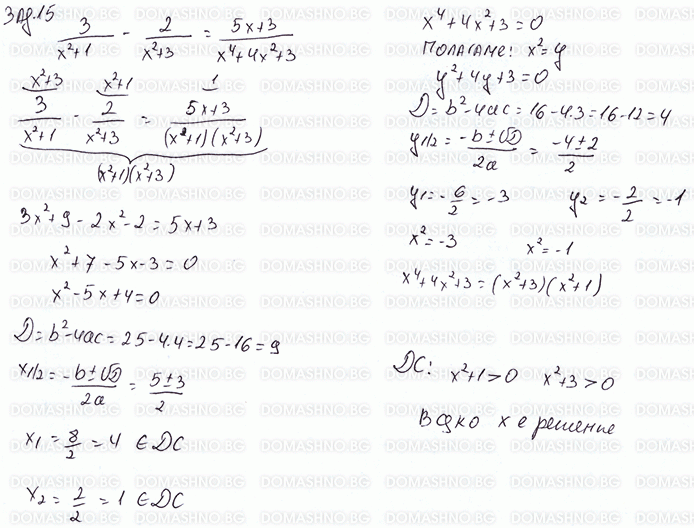 Зад.15
3/(x²+1) - 2/(x²+3) = (5x+3)/(x⁴+4x²+3)
x²+3 x²+1 1
3/(x²+1) - 2/(x²+3) = (5x+3)/((x²+1)(x²+3))
(x²+1)(x²+3)
3x²+9-2x²-2=5x+3
x²+7-5x-3=0
x²-5x+4=0
D=b²-4ac=25-4.4=25-16=9
x1/2=(-b±√D)/2a=(5±3)/2
x₁=8/2=4 ∈ДС
x₂=2/2=1 ∈ДС
x⁴+4x²+3=0
Полагаме: x²=y
y²+4y+3=0
D=b²-4ac=16-4.3=16-12=4
y1/2=(-b±√D)/2a=(-4±2)/2
y₁=-6/2=-3 y₂=-2/2=-1
x²=-3 x²=-1
x⁴+4x²+3=(x²+3)(x²+1)
ДС: x²+1>0 x²+3>0
Всяко x е решение
DOMASHNO.BG